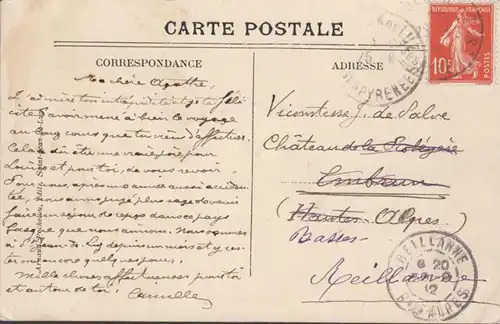 CARTE POSTALE
CORRESPONDANCE
Ma chère Agathe,
J'admire ton intrépidité et je te féli
cite d'avoir mené à bien le voyage
au long cours que tu viens d'effectuer.
Cela a dû être une vraie joie, pour
Louise et pour toi, de vous revoir
Pour nous, après une année aussi acciden
tée, nous avons jugé plus sage de venir
faire un séjour de repos dans ce pays
basque que nous aimons. Nous sommes
à St Jean-de-Luz depuis un mois et y res
terons encore quelques jours.
Mille choses affectueuses pour toi
et autour de toi.
Camille
ADRESSE
REPUBLIQUE FRANÇAISE
10c
POSTES
PYRENEES
Vicomtesse J. de Salve
Château de la
Embrun
Hautes Alpes
Basses-
Reillanne
REILLANNE
20
12
BSES ALPES